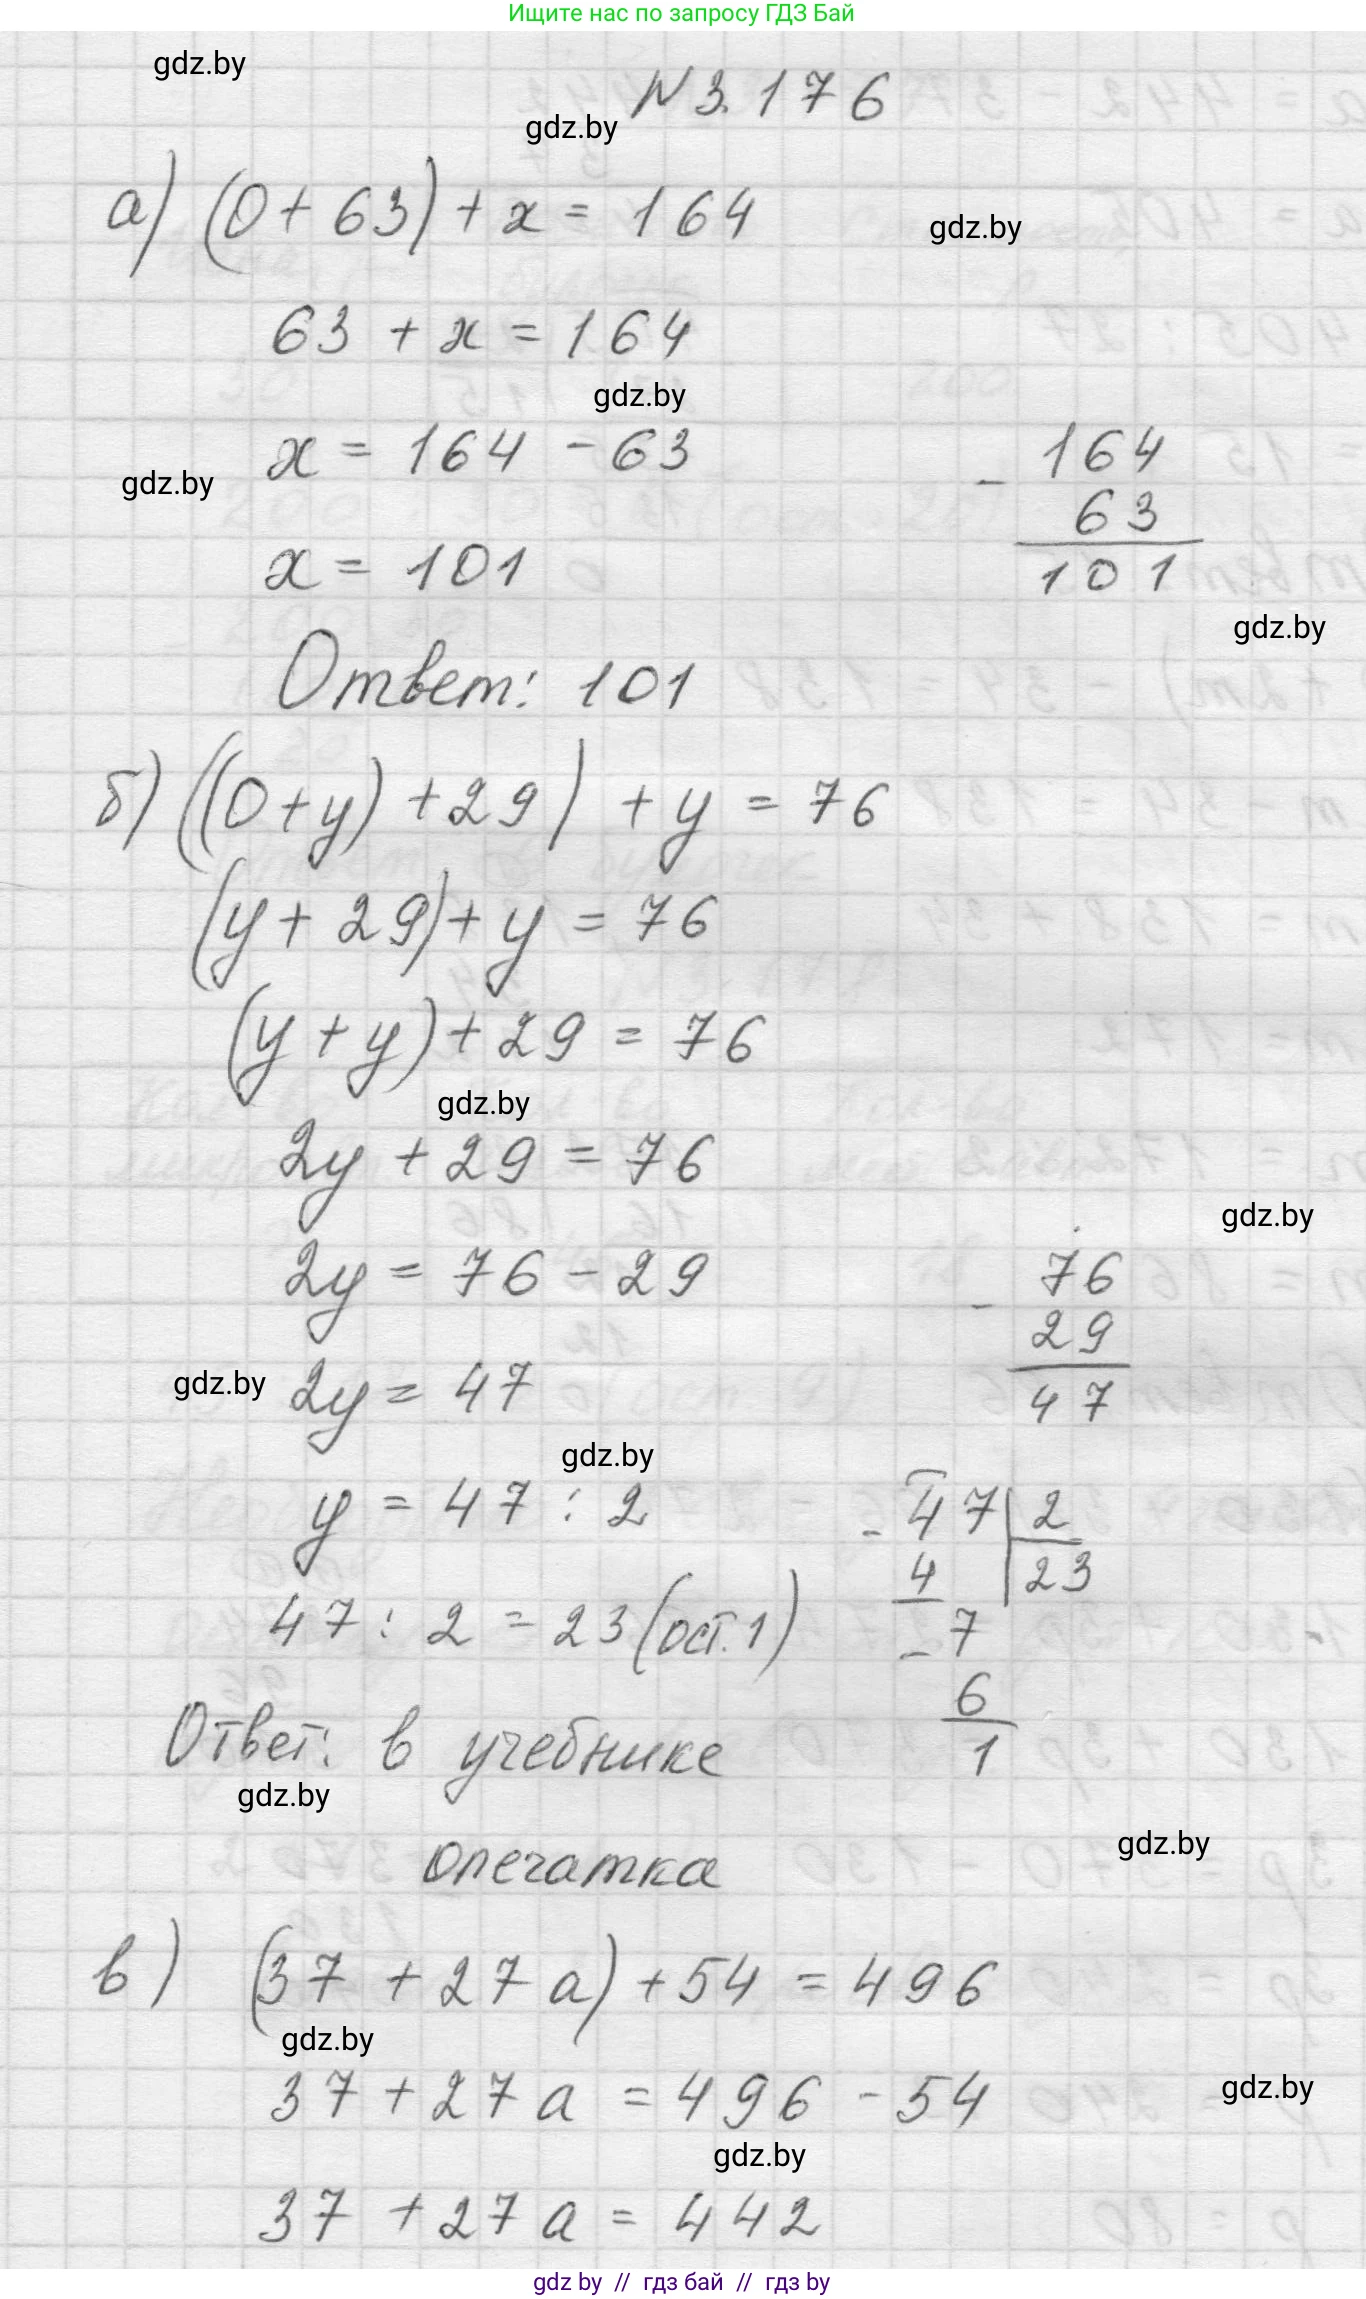 Ищите нас по запросу ГДЗ Бай
gdz.by
N 3.176
gdz.by
а) (0 + 63) + x = 164
gdz.by
63 + x = 164
gdz.by
x = 164 - 63
gdz.by
x = 101
- 164
63
101
gdz.by
Ответ: 101
б) ((0+y) + 29) + y = 76
(y + 29) + y = 76
(y + y) + 29 = 76
gdz.by
2y + 29 = 76
gdz.by
2y = 76 - 29
- 76
29
47
gdz.by
2y = 47
gdz.by
y = 47 : 2
47 : 2 = 23 (ост. 1)
- 47 | 2
4 | 23
- 7
6
1
Ответ: в учебнике
gdz.by
опечатка
gdz.by
в) (37 + 27a) + 54 = 496
gdz.by
37 + 27a = 496 - 54
gdz.by
gdz.by
37 + 27a = 442
gdz by // гдз бай // гдз by